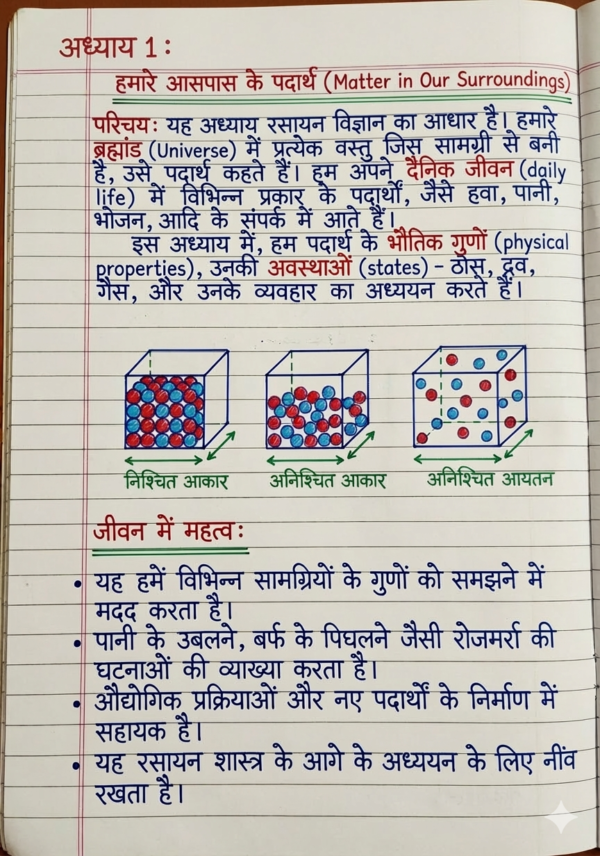 अध्याय 1:
हमारे आसपास के पदार्थ (Matter in Our Surroundings)
परिचय: यह अध्याय रसायन विज्ञान का आधार है। हमारे
ब्रह्मांड (Universe) में प्रत्येक वस्तु जिस सामग्री से बनी
है, उसे पदार्थ कहते हैं। हम अपने दैनिक जीवन (daily
life) में विभिन्न प्रकार के पदार्थों, जैसे हवा, पानी,
भोजन, आदि के संपर्क में आते हैं।
इस अध्याय में, हम पदार्थ के भौतिक गुणों (physical
properties), उनकी अवस्थाओं (states) – ठोस, द्रव,
गैस, और उनके व्यवहार का अध्ययन करते हैं।
निश्चित आकार
अनिश्चित आकार
अनिश्चित आयतन
जीवन में महत्व:
• यह हमें विभिन्न सामग्रियों के गुणों को समझने में
मदद करता है।
• पानी के उबलने, बर्फ के पिघलने जैसी रोजमर्रा की
घटनाओं की व्याख्या करता है।
• औद्योगिक प्रक्रियाओं और नए पदार्थों के निर्माण में
सहायक है।
• यह रसायन शास्त्र के आगे के अध्ययन के लिए नींव
रखता है।